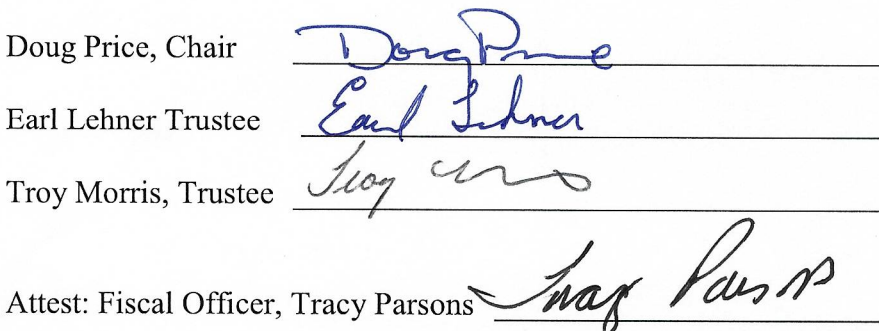 Doug Price, Chair Doug Price
Earl Lehner Trustee Earl Lehner
Troy Morris, Trustee Troy
Attest: Fiscal Officer, Tracy Parsons Tracy Parsons